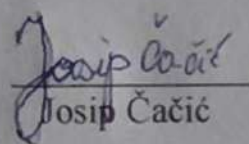 Josip Čačić
Josip Čačić